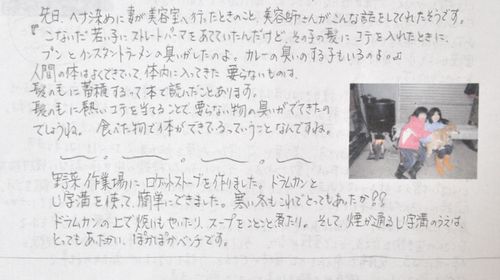 先日、ヘナ染めに妻が美容室へ行ったときのこと、美容師さんがこんな話をしてくれたそうです。
『こないだ若い子にストレートパーマをあてていたんだけど、その子の髪にコテを入れたときに、
プンとインスタントラーメンの臭いがしたのよ。カレーの臭いのする子もいるのよ。』
人間の体はよくできていて、体内に入ってきた要らないものは、
髪の毛に蓄積するって本で読んだことあります。
髪の毛に熱いコテを当てることで、要らない物の臭いがでてきたの
でしょうね。食べた物で体ができているっていうことなんですね。
野菜作業場にロケットストーブを作りました。ドラムカンと
U字溝を使って、簡単にできました。寒い冬もこれでとってもあたか??
ドラムカンの上で焼いもやいたり、スープをことこと煮たり。そして、煙が通るU字溝のうえは、
とってもあたかい、ぽかぽかベンチです。